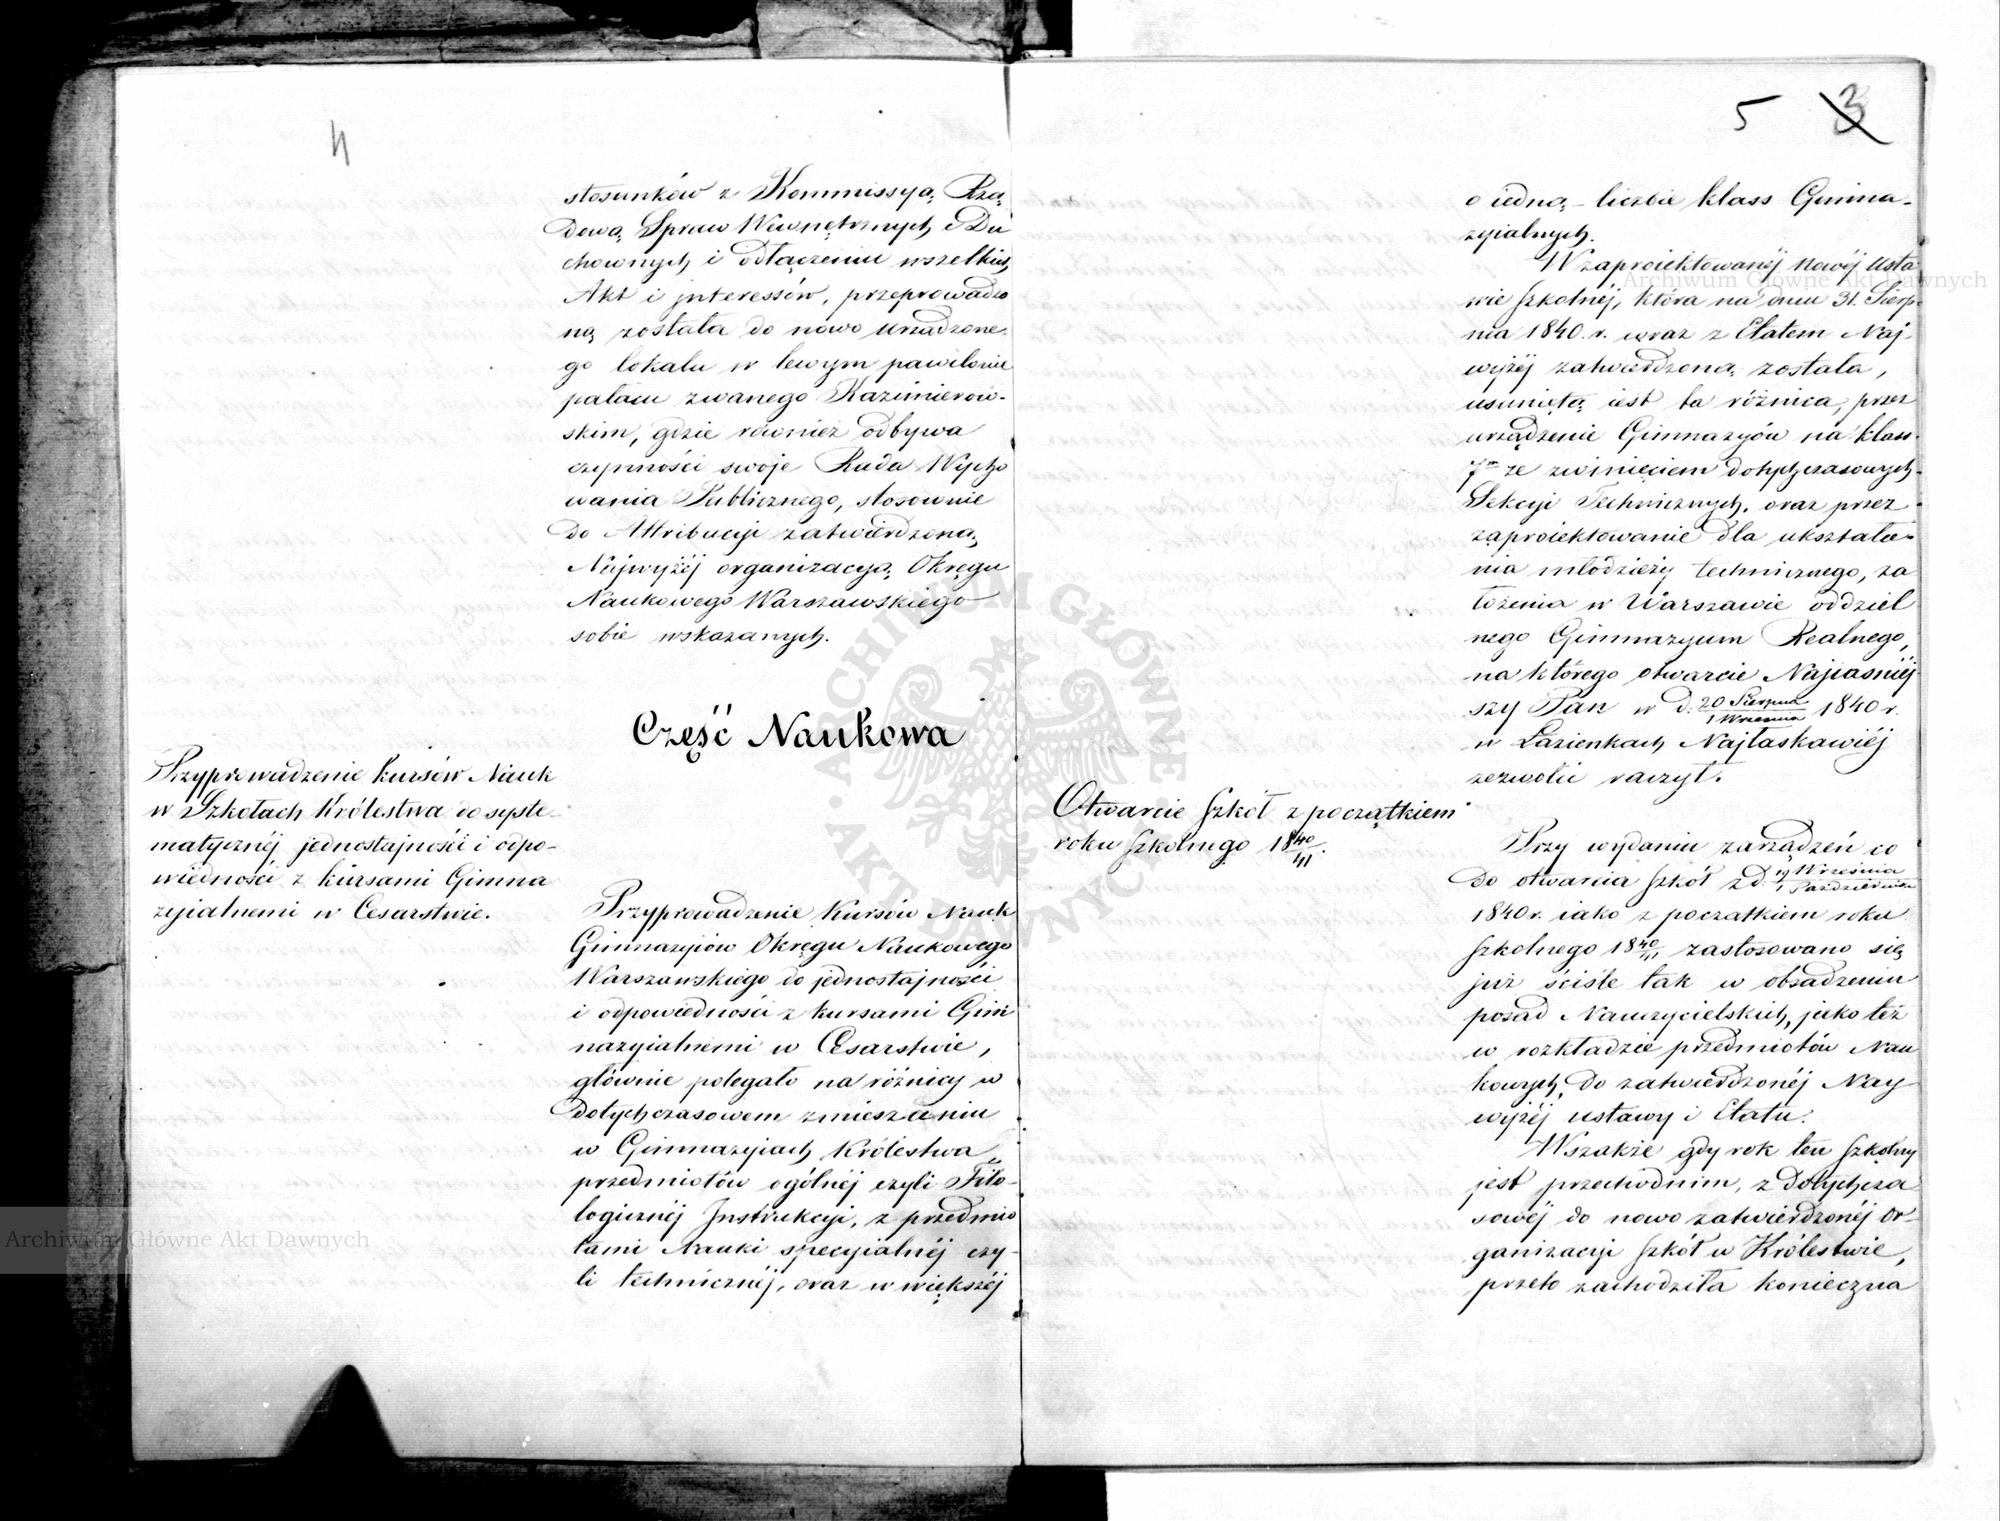 4
stosunków z Kommissyą Rzą
dową Spraw Wewnętrznych i Du
chownych i odłączeniu wszelkich
Akt i interessów, przeprowadzo
ną została do nowo urządzone
go lokalu w lewym pawilonie
pałacu zwanego Kazimierow-
skim, gdzie również odbywa
czynności swoje Rada Wycho
wania Publicznego, stosownie
do Attribucyi zatwierdzoną
Najwyżéj organizacyą Okręgu
Naukowego Warszawskiego
sobie wskazanych.
Część Naukowa
Przyprowadzenie kursów Nauk
w Szkołach Królestwa do syste-
matycznéj jednostajności i odpo-
wiedności z kursami Gimna
zyialnemi w Cesarstwie.
Przyprowadzenie Kursów Nauk
Gimnazyiów Okręgu Naukowego
Warszawskiego do jednostajności
i odpowiedności z kursami Gim
nazyialnemi w Cesarstwie,
głównie polegało na różnicy w
dotychczasowem zmieszaniu
w Gimnazyiach Królestwa
przedmiotów ogólnéj czyli Filo-
logicznéj Instrukcyi, z przedmio
tami Nauki specyialnéj czy-
li technicznéj, oraz w większéj
5 3
o iedną liczbie klass Gimna-
zyialnych.
W zaproiektowanéj nowéj Usta
wie Szkolnéj, która na dniu 31. Sierp-
nia 1840. r. wraz z Etatem Naj-
wyżéj zatwierdzoną została,
usuniętą iest ta różnica, przez
urządzenie Gimnazyów na klass
7m ze zwinięciem dotychczasowych
Sekcyi Technicznych, oraz przez
zaproiektowanie dla ukształce-
nia młodzieży technicznego, za
łożenia w Warszawie oddziel
nego Gimnazyum Realnego,
na którego otwarcie Najiaśniéj
szy Pan w d. 20 Sierpnia/1 Września 1840 r.
w Łazienkach Najłaskawiéj
zezwolić raczył.
Otwarcie Szkół z początkiem
roku Szkolnego 1840/41.
Przy wydaniu zarządzeń co
do otwarcia Szkół z d. 19 Września/1 Października
1840 r. iako z początkiem roku
Szkolnego 1840/41 zastosowano się
już ściśle tak w obsadzeniu
posad Nauczycielskich, jako też
w rozkładzie przedmiotów Nau
kowych, do zatwierdzonéj Nay
wyżéj ustawy i Etatu.
Wszakże gdy rok ten Szkolny
jest przechodnim, z dotychcza
sowéj do nowo zatwierdzonéj or-
ganizacyi Szkół w Królestwie,
przeto zachodziła konieczna
Archiwum Główne Akt Dawnych
Archiwum Główne Akt Dawnych
ARCHIWUM GŁÓWNE AKT DAWNYCH